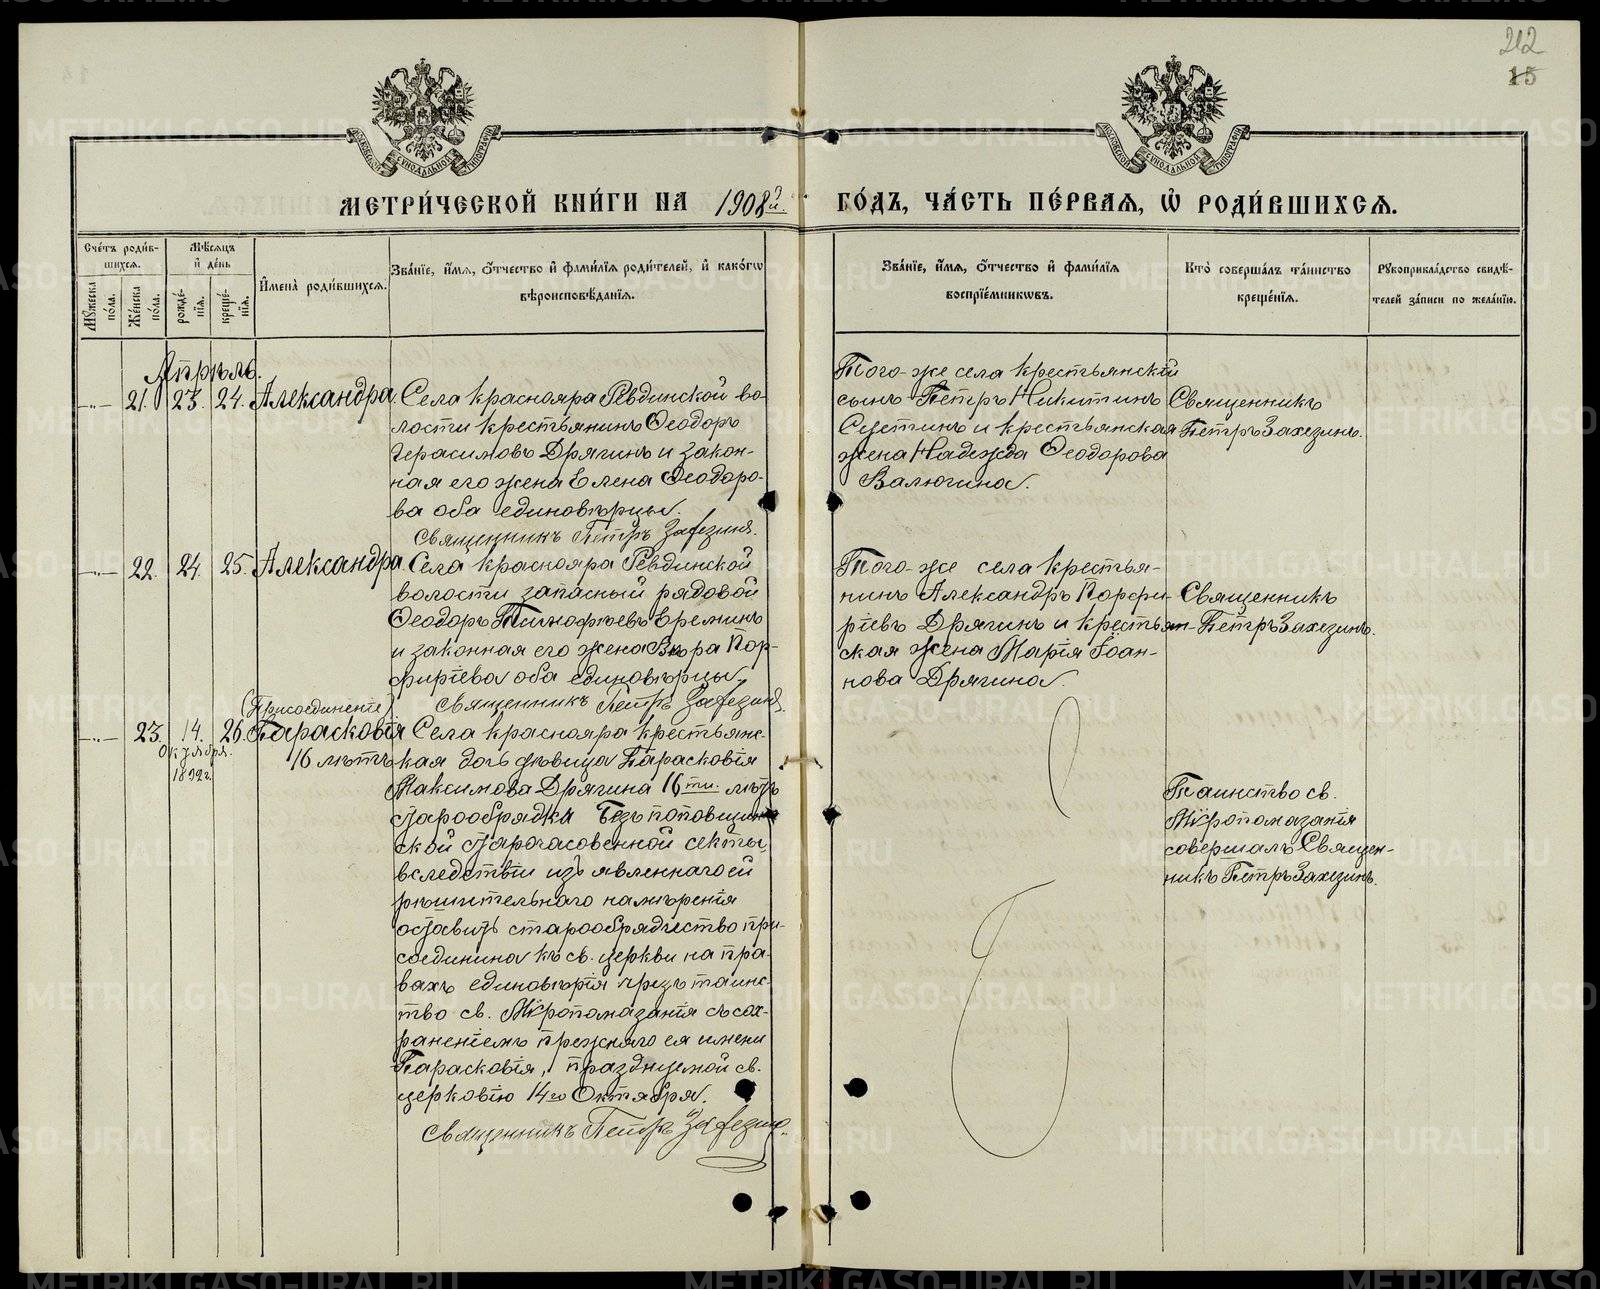 212
15
МЕТРИ́ЧЕСКОЙ КНИ́ГИ НА 1908й. ГО́ДЪ, ЧА́СТЬ ПЕ́РВАЯ, Ѡ҆ РОДИ́ВШИХСЯ.
Сче́тъ роди́в-
шихся.
Мѣ́сяцъ
и҆ де́нь
Мꙋ́жеска
по́ла.
Же́нска
по́ла.
рожде́-
нїя.
креще́-
нїя.
И҆мена̀ роди́вшихся.
Зва́нїе, и҆́мя, ѻ҆́тчество и҆ фами́лїя роди́телей, и҆ како́гѡ
вѣроисповѣ́данїя.
Зва́нїе, и҆́мя, ѻ҆́тчество и҆ фами́лїя
воспрїе́мникѡвъ.
Кто̀ соверша́лъ та́инство
креще́нїя.
Рꙋкоприкла́дство свидѣ́-
телей за́писи по жела́нїю.
Апрѣль.
21. 23. 24. Александра
Села Краснояра Ревдинской во-
лости крестьянинъ Ѳеодоръ
Герасимовъ Дрягинъ и закон-
ная его жена Елена Ѳеодоро-
ва оба единовѣрцы.
Священникъ Петръ Захезинъ.
Того-же села крестьянскій
сынъ Петръ Никитинъ
Сустинъ и крестьянская
жена Надежда Ѳеодорова
Валюгина.
Священникъ
Петръ Захезинъ.
22. 24. 25. Александра
Села Краснояра Ревдинской
волости запасный рядовой
Ѳеодоръ Тимофѣевъ Ереминъ
и законная его жена Вѣра Пор-
фиріева оба единовѣрцы.
Священникъ Петръ Захезинъ.
Того-же села крестья-
нинъ Александръ Порфи-
ріевъ Дрягинъ и крестьян-
ская жена Марія Іоан-
нова Дрягина.
Священникъ
Петръ Захезинъ.
(Присоединеніе)
23. 14. 26. Парасковія
Октября.
1892 г.
16 лѣтъ
Села Краснояра крестьянс-
кая дочь дѣвица Парасковія
Максимова Дрягина 16ти. лѣтъ
старообрядка Безпоповщин-
ской старочасовенной секты,
вследствіи изъявленнаго ей
рѣшительнаго намѣренія
оставить старообрядчество при-
соединина къ св. церкви на пра-
вахъ единовѣрія чрезъ таинс-
тво св. Мѵропомазанія съ сох-
раненіемъ прежняго ея имени
Парасковія, празднуемой св.
церковію 14го Октября.
Священникъ Петръ Захезинъ.
Таинство св.
Мѵропомазанія
совершалъ Священ-
никъ Петръ Захезинъ.
METRIKI.GASO-URAL.RU